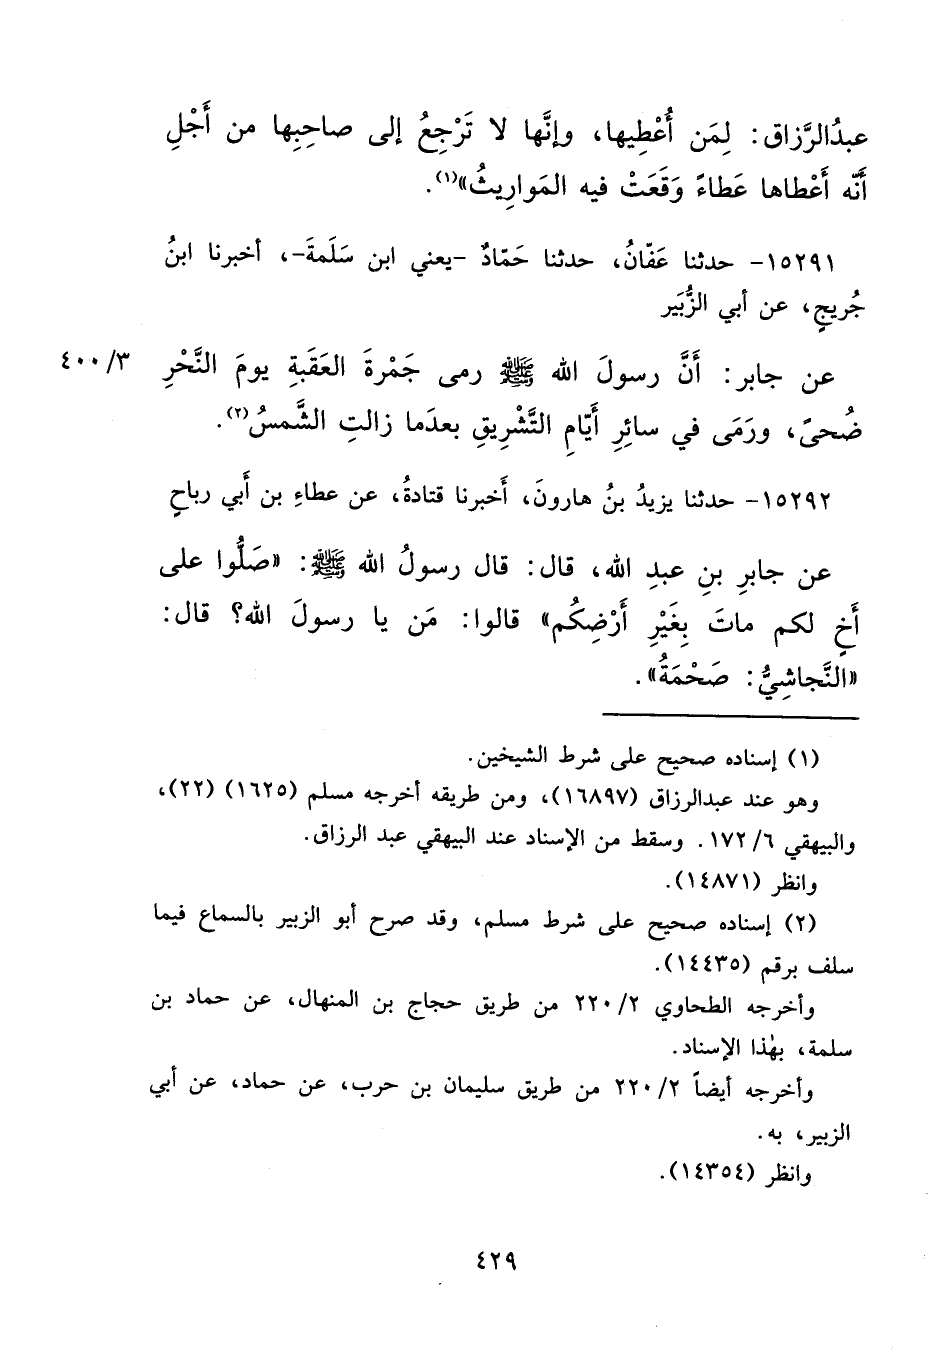 عبدُالرَّزاق: لِمَن أُعْطِيها، وإنَّها لا تَرْجِعُ إلى صاحِبِها من أَجْلِ
أَنّه أَعْطاها عَطاءً وَقَعَتْ فيه المَوارِيثُ»(١).
١٥٢٩١- حدثنا عَفّانُ، حدثنا حَمّادٌ -يعني ابن سَلَمةَ-، أخبرنا ابنُ
جُريجٍ، عن أبي الزُّبَير
عن جابر: أَنَّ رسولَ الله ﷺ رمى جَمْرةَ العَقَبةِ يومَ النَّحْرِ ٤٠٠/٣
ضُحىً، ورَمَى في سائِرِ أَيّامِ التَّشْرِيقِ بعدَما زالتِ الشَّمسُ(٢).
١٥٢٩٢- حدثنا يزيدُ بنُ هارونَ، أَخبرنا قتادةُ، عن عطاءِ بن أَبي رباحٍ
عن جابرِ بنِ عبدِ الله، قال: قال رسولُ الله ﷺ: «صَلُّوا على
أَخٍ لكم ماتَ بِغَيْرِ أَرْضِكُم» قالوا: مَن يا رسولَ الله؟ قال:
«النَّجاشِيُّ: صَحْمَةُ».
(١) إسناده صحيح على شرط الشيخين.
وهو عند عبدالرزاق (١٦٨٩٧)، ومن طريقه أخرجه مسلم (١٦٢٥) (٢٢)،
والبيهقي ١٧٢/٦. وسقط من الإسناد عند البيهقي عبد الرزاق.
وانظر (١٤٨٧١).
(٢) إسناده صحيح على شرط مسلم، وقد صرح أبو الزبير بالسماع فيما
سلف برقم (١٤٤٣٥).
وأخرجه الطحاوي ٢٢٠/٢ من طريق حجاج بن المنهال، عن حماد بن
سلمة، بهٰذا الإسناد.
وأخرجه أيضاً ٢٢٠/٢ من طريق سليمان بن حرب، عن حماد، عن أبي
الزبير، به.
وانظر (١٤٣٥٤).
٤٢٩